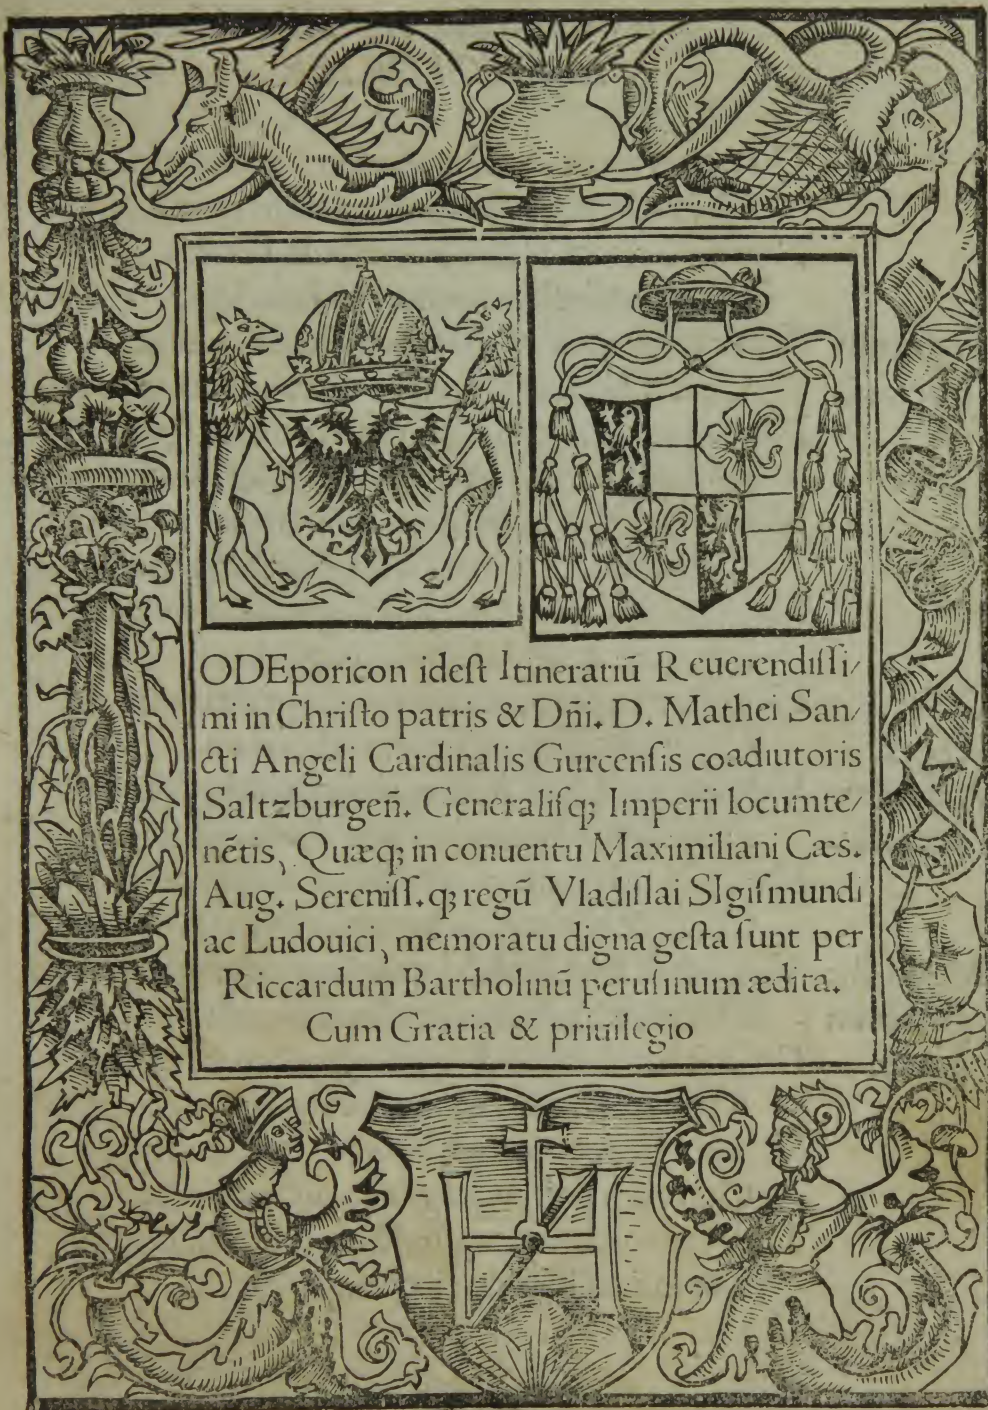 ODEporicon ideſt Itinerariū Reuerendiſſi/
mi in Chriſto patris & Dñi. D. Mathei San/
cti Angeli Cardinalis Gurcenſis coadiutoris
Saltzburgeñ. Generaliſq; Imperii locumte/
nētis, Quæq; in conuentu Maximiliani Cæs.
Aug. Sereniſſ.q; regū Vladiſlai SIgiſmundi
ac Ludouici, memoratu digna geſta ſunt per
Riccardum Bartholinū peruſinum ædita.
Cum Gratia & priuilegio